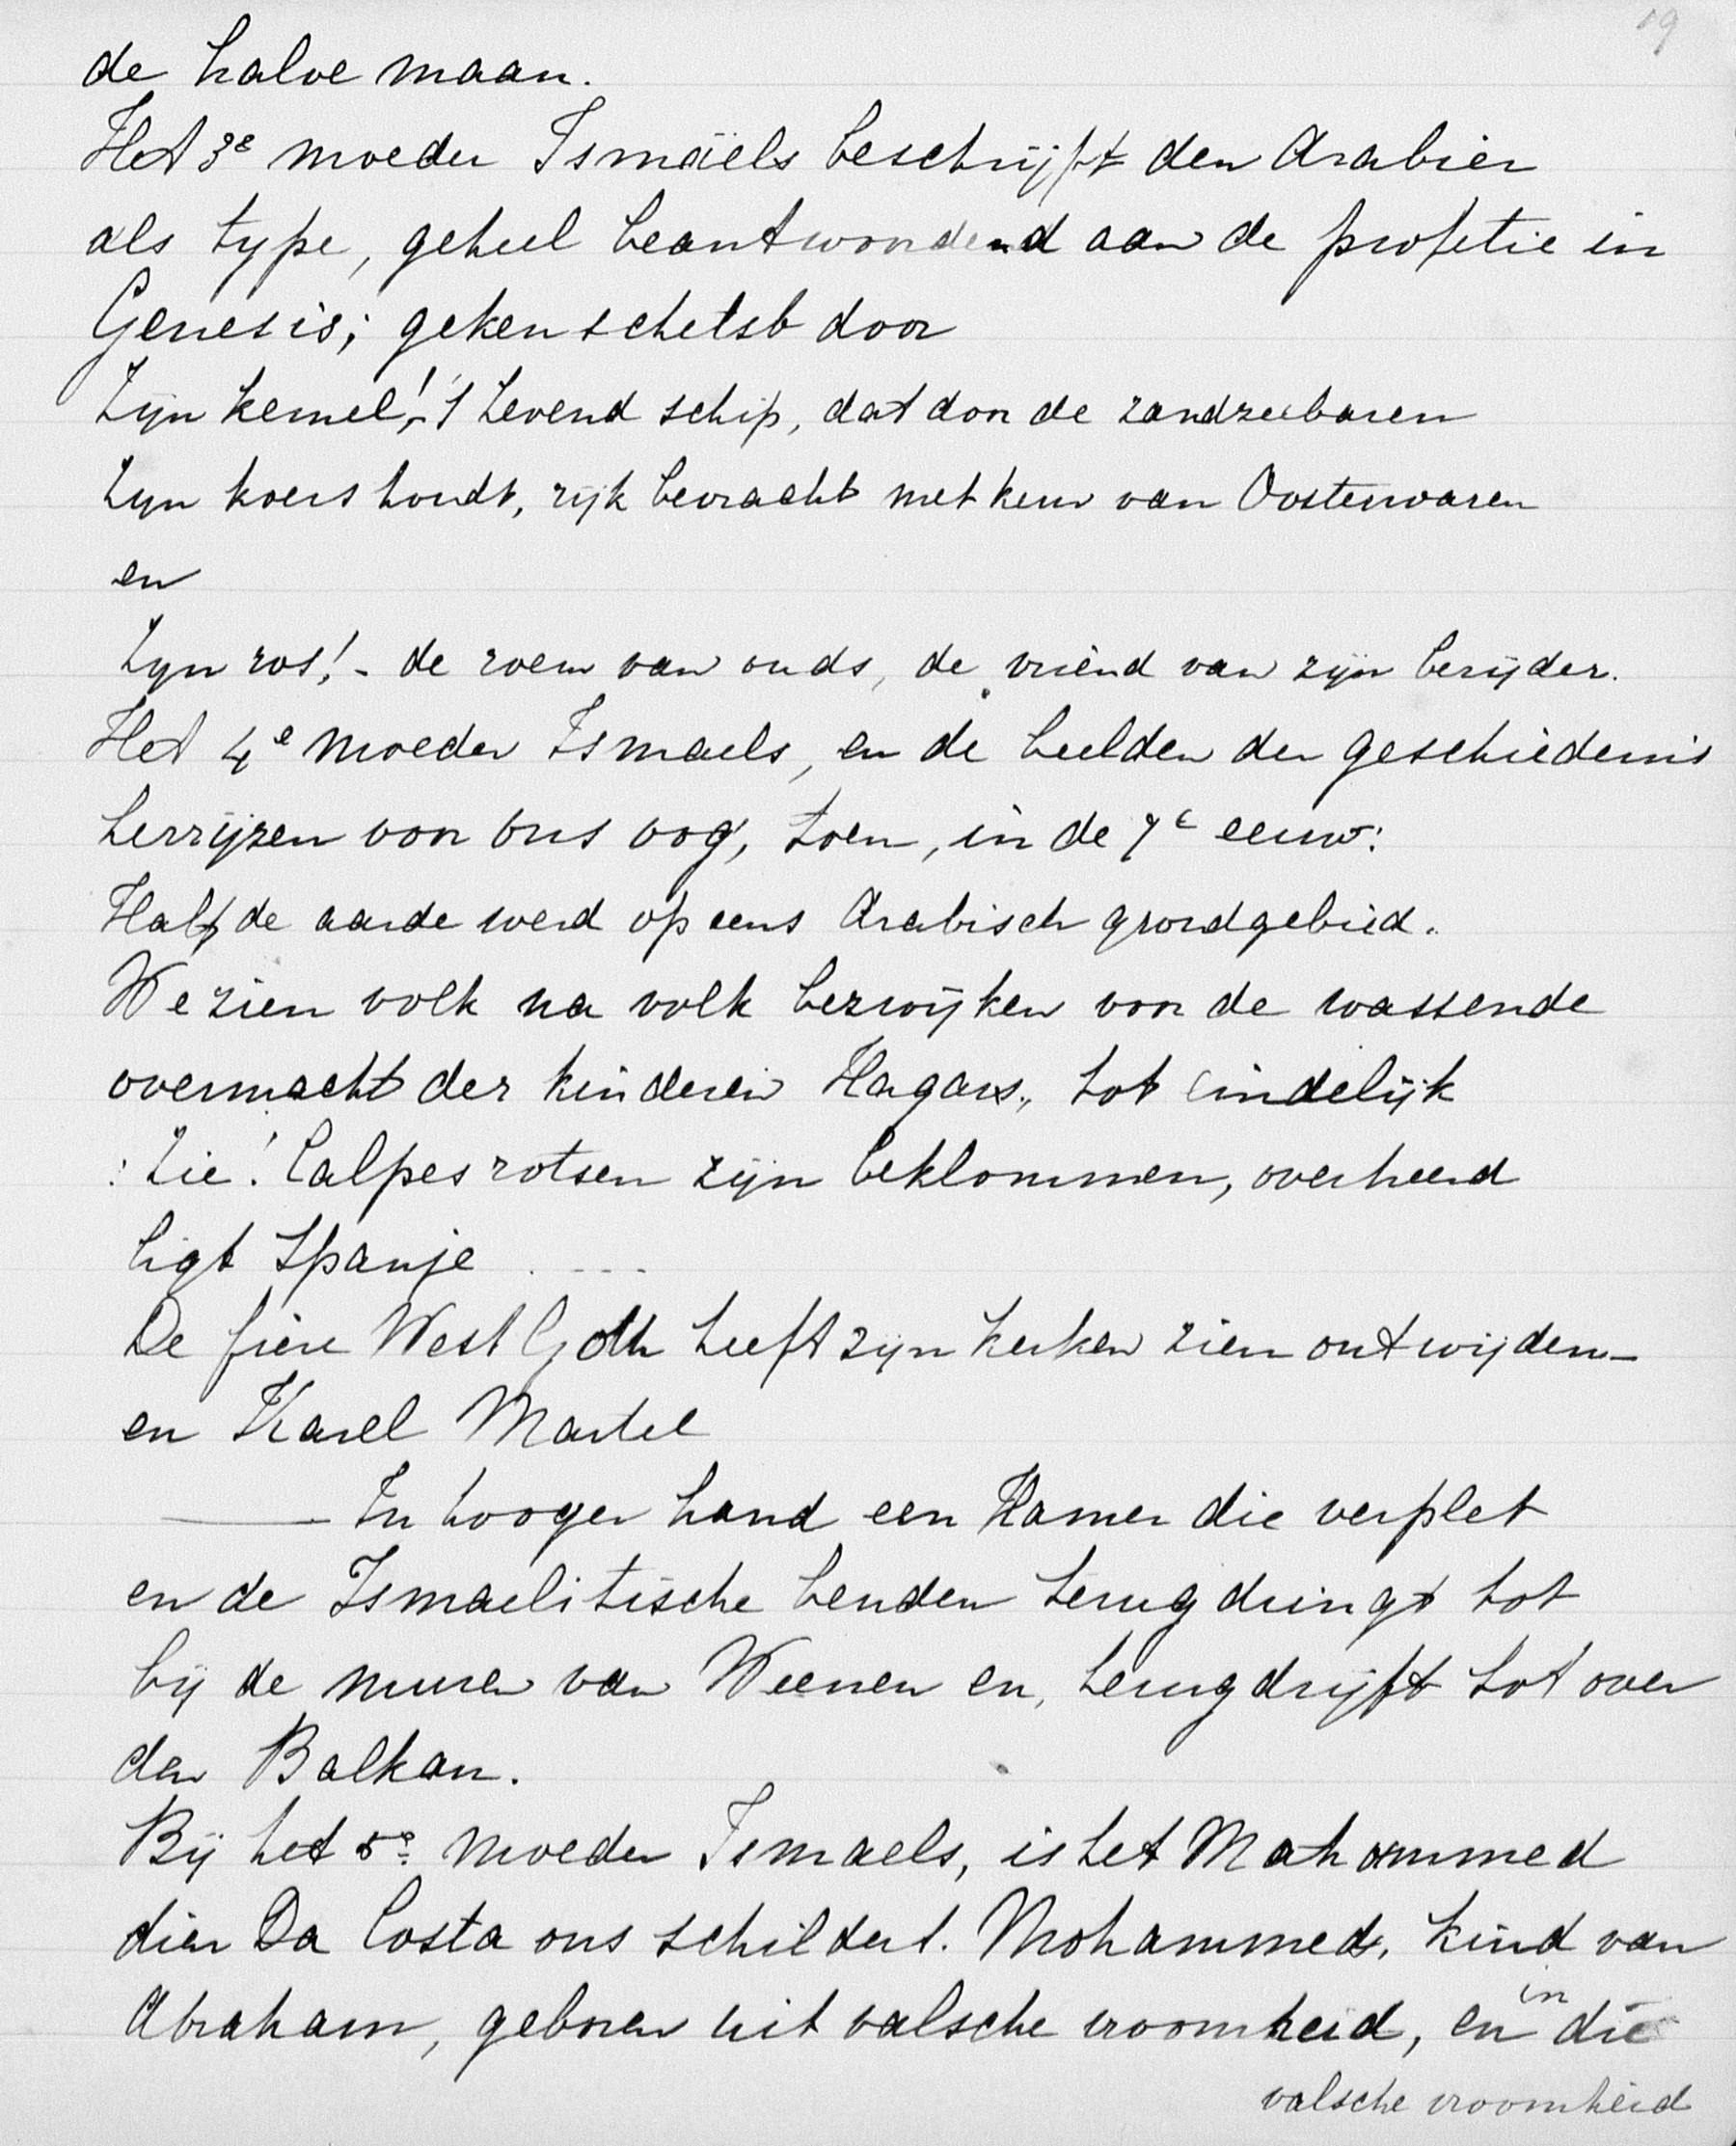 19
de halve maan.
Het 3e moeder Ismaëls beschrijft den Arabier
als type, geheel beantwoordend aan de profetie in
Genesis; gekenschetst door
Zijn kemel!, - 't levend schip, dat door de zandzeebaren
Zijn koers houdt, rijk bevracht met keur van Oosterwaren
en
Zijn ros! - de roem van ouds, de vriend van zijn berijder.
Het 4e moeder Ismaels, en de beelden der geschiedenis
herrijzen voor ons oog, toen, in de 7e eeuw:
Half de aarde werd op eens Arabisch grondgebied.
We zien volk na volk bezwijken voor de wassende
overmacht der kinderen Hagars, tot eindelijk
: Zie! Calpes rotsen zijn beklommen, overheerd
ligt Spanje . - - -
De fiere West Goth heeft zijn kerken zien ontwijden -
en Karel Martel
——— In hooger hand een Hamer die verplet
en de Ismaelitische benden terugdringt tot
bij de muren van Weenen en, terugdrijft tot over
den Balkan.
Bij het 5e moeder Ismaels, is het Mahommed
dien Da Costa ons schildert. Mohammed, kind van
Abraham, geboren uit valsche vroomheid, en in die
valsche vroomheid